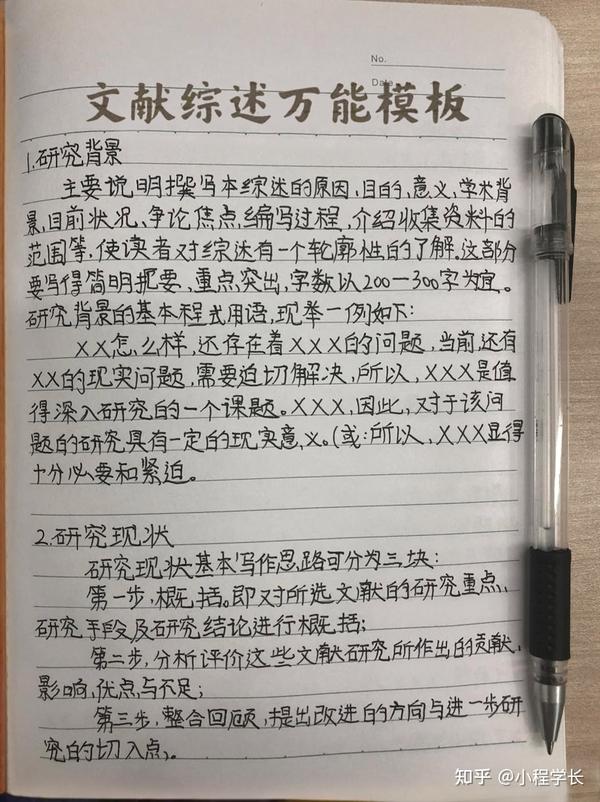 No.
Date
文献综述万能模板
1.研究背景
主要说明撰写本综述的原因,目的,意义,学术背
景,目前状况、争论焦点,编写过程,介绍收集资料的
范围等,使读者对综述有一个轮廓性的了解。这部分
要写得简明扼要,重点突出,字数以200—300字为宜。
研究背景的基本程式用语,现举一例如下:
XX怎么样,还存在着XXX的问题,当前还有
XX的现实问题,需要迫切解决,所以,XXX是值
得深入研究的一个课题。XXX,因此,对于该问
题的研究具有一定的现实意义。(或:所以,XXX显得
十分必要和紧迫。
2.研究现状
研究现状基本写作思路可分为三块:
第一步,概括。即对所选文献的研究重点、
研究手段及研究结论进行概括;
第二步,分析评价这些文献研究所作出的贡献、
影响,优点与不足;
第三步,整合回顾,提出改进的方向与进一步研
究的切入点。
知乎 @小程学长